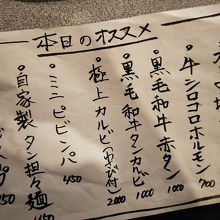 本日のオススメ
・牛シロコロホルモン 700
・黒毛和牛赤タン 1000
・黒毛和牛タンカルビ 1000
・極上カルビ(わさび付) 2000
・ミニビビンバ 450
・自家製タン担々麺 450